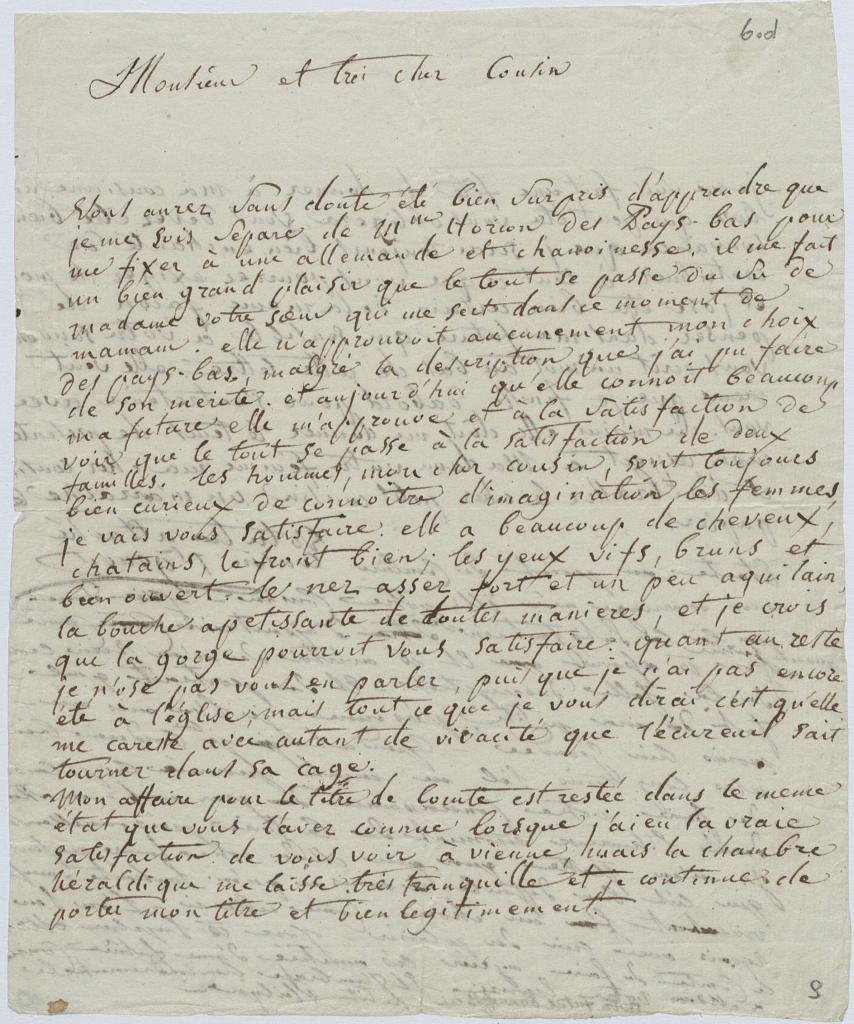 6.d
Monsieur et très cher Cousin
Vous aurez sans doute été bien surpris d'apprendre que
je me suis separé de Mme Horion des Pays-bas pour
me fixer à une allemande et chanoinesse. il me fait
un bien grand plaisir que le tout se passe du su de
madame votre sœur qui me sert dans ce moment de
mamam. elle n'approuvoit aucunement mon choix
des pays-bas, malgré la description que j'ai pu faire
de son merite. et aujourd'hui qu'elle connoit beaucoup
ma future elle m'approuve et à la satisfaction de
voir que le tout se passe à la satisfaction de deux
familles. les hommes, mon cher cousin, sont toujours
bien curieux de connoitre d'imagination les femmes,
je vais vous satisfaire. elle a beaucoup de cheveux,
chatains, le front bien; les yeux vifs, bruns et
bien ouvert. le nez assez fort et un peu aquilain,
la bouche apetissante de toutes manieres, et je crois
que la gorge pourroit vous satisfaire. quant au reste
je n'ose pas vous en parler, puis que je n'ai pas encore
été à l'église, mais tout ce que je vous dirai c'est qu'elle
me caresse avec autant de vivacité que l'écureuil sait
tourner dans sa cage.
Mon affaire pour le titre de Comte est restée dans le meme
état que vous l'avez connue lorsque j'ai eu la vraie
satisfaction de vous voir à vienne, mais la chambre
héraldique me laisse très tranquille et je continue de
porter mon titre et bien legitimement.